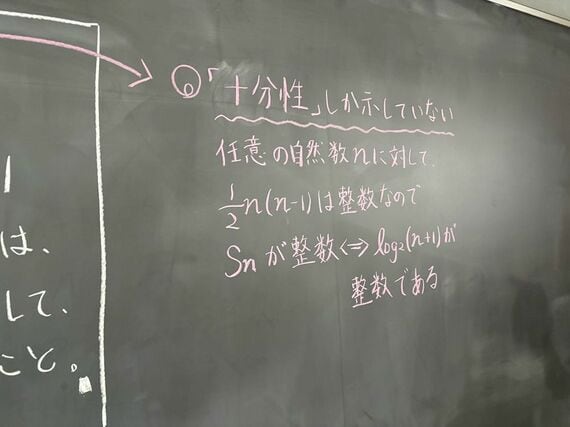 1
は、
して、
こと。
◎「十分性」しか示していない
任意の自然数nに対して、
1/2 n(n-1)は整数なので
Snが整数⇔log₂(n+1)が
整数である